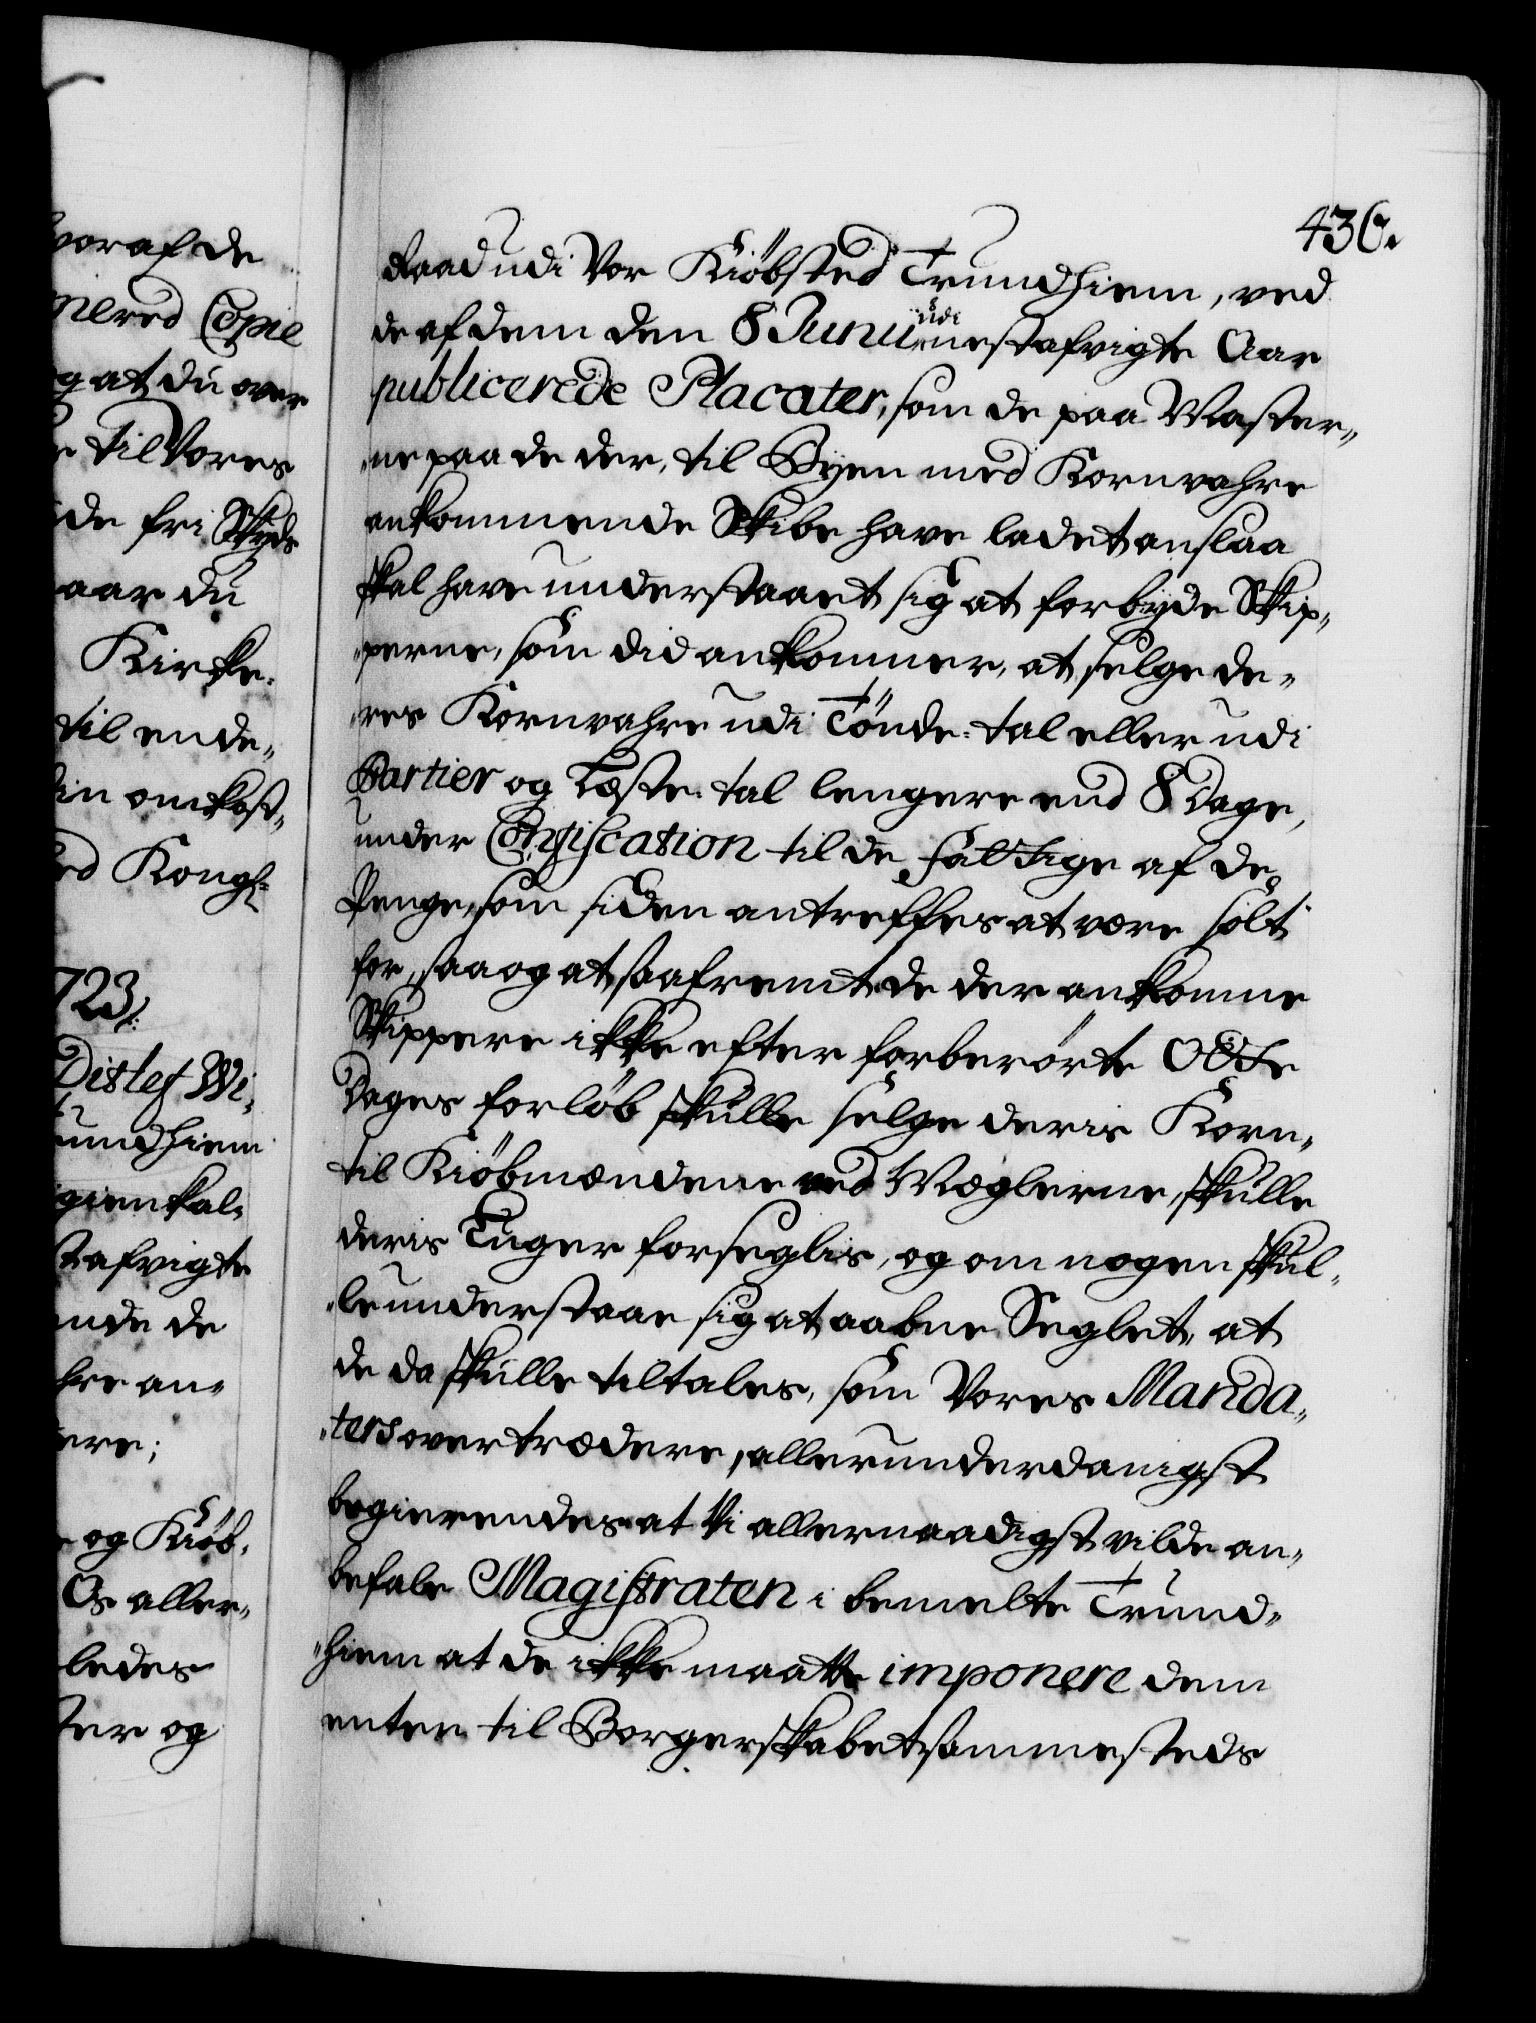 voraf de
nered Copie
g at du over
r til Vores
de fri Skyds
aar du
Kirke-
til ende„
din omkost„
ed Kongl:
723.
Ditlef Wi-
rundhiem
gienkal-
stafvigte
ende de
hre an-
ere;
og Kiöb-
Os aller-
ledes
ter og
430.
Raad udi Vor Kiöbsted Trundhiem, ved
de af dem den 8 Junii udi nestafvigte Aar
publicerede Placater, som de paa Master„
„ne paa de der til Byen med Kornvahre
ankommende Skibe have ladet anslaa
skal have understaaet sig at forbyde Skip„
„perne, som did ankommer, at selge de„
„res Kornvahre udi Tönde-tal eller udi
Partier og Læste-tal lengere end 8 Dage,
under Confiscation til de fattige af de
Penge, som siden antreffes at være solt
for, saa og at saafremt de der ankomne
Skippere ikke efter forberörte Otte
Dages forlöb skulle selge deris Korn„
til Kiöbmændene ved Mæglerne, skulle
deris Luger forseglis, og om nogen skul„
„le understaae sig at aabne Seglet, at
de da skulle tiltales, som Vores Manda„
„ters overtrædere, allerunderdanigst
begierendes at Vi allernaadigst vilde an„
befale Magistraten i bemelte Trund„
„hiem at de ikke maatte imponere dem
enten til Borgerskabet sammesteds